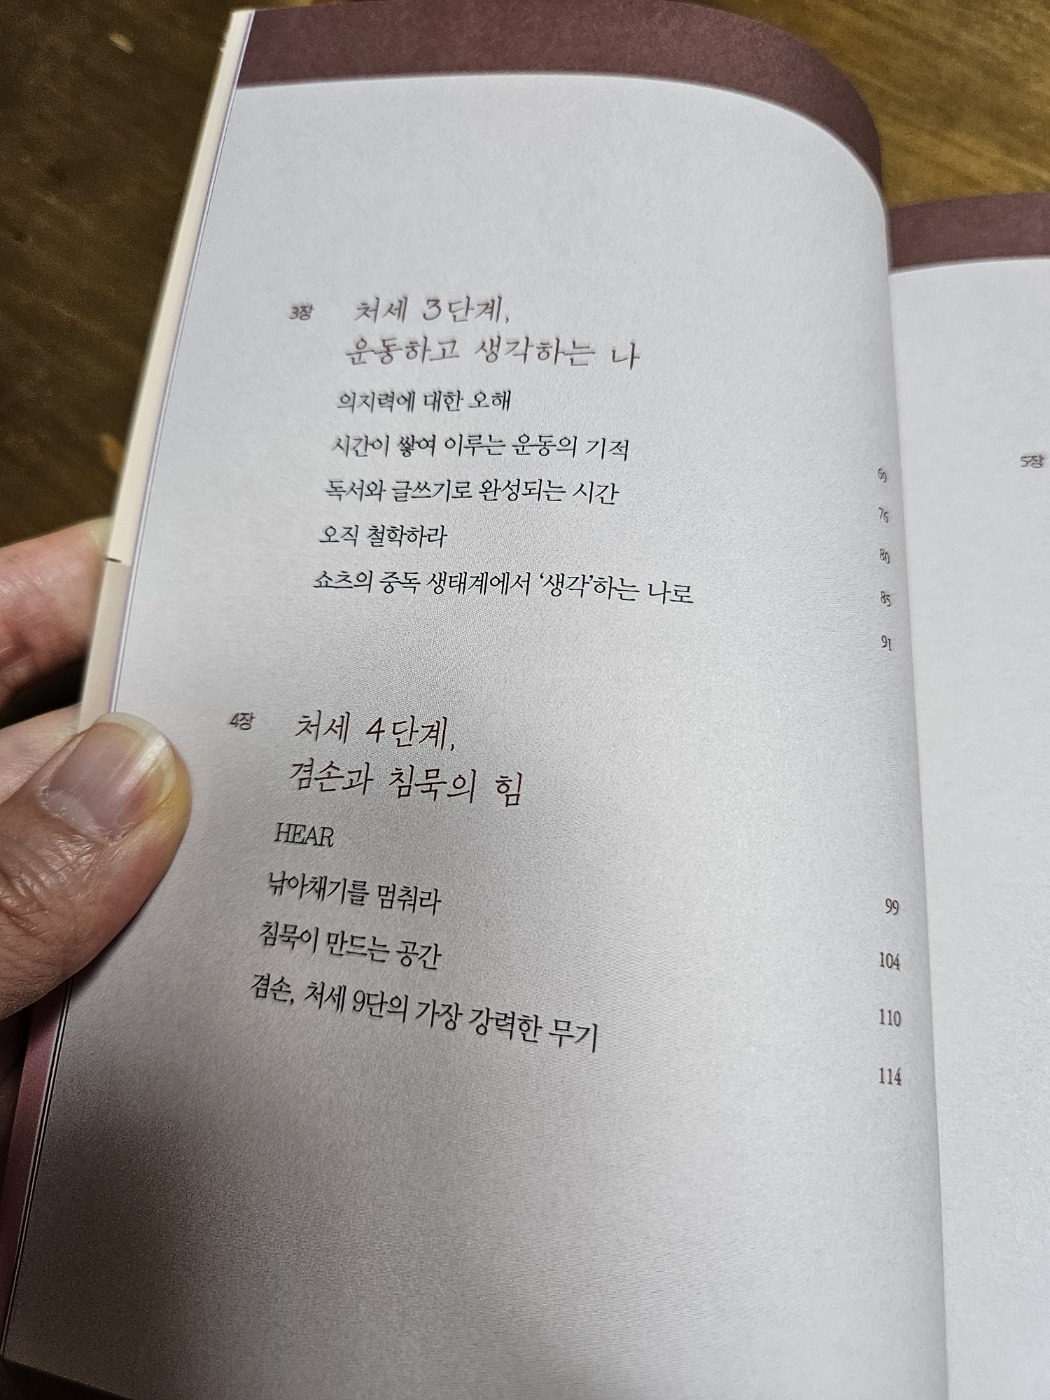 3장 처세 3단계,
운동하고 생각하는 나
의지력에 대한 오해
시간이 쌓여 이루는 운동의 기적 69
독서와 글쓰기로 완성되는 시간 76
오직 철학하라 80
쇼츠의 중독 생태계에서 ‘생각’하는 나로 85
91
4장 처세 4단계,
겸손과 침묵의 힘
HEAR
낚아채기를 멈춰라 99
침묵이 만드는 공간 104
겸손, 처세 9단의 가장 강력한 무기 110
114
5장